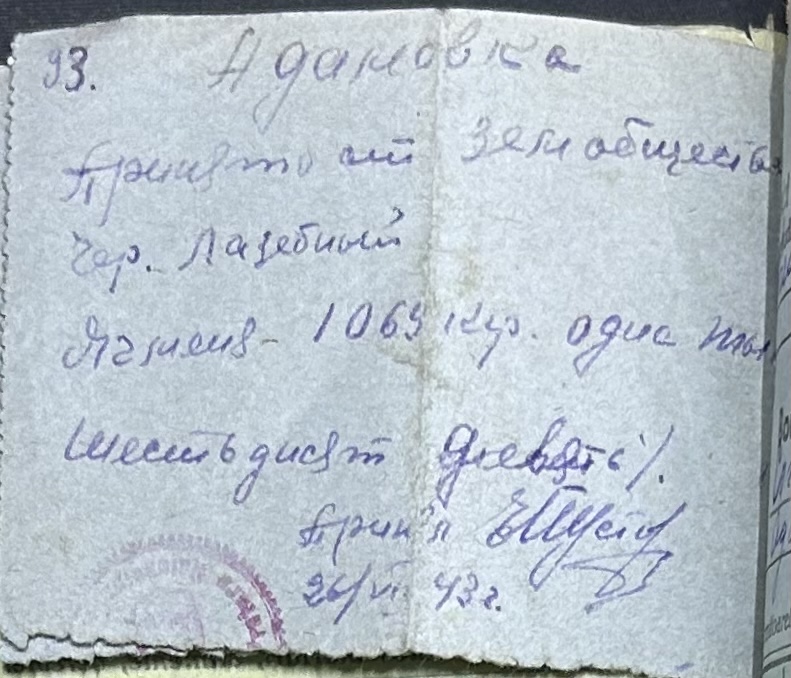 93. Адамовка
Принято от Земобщества
Чер. Лазебный
Ячменя - 1069 кгр. одна тыс
шестьдисят девять/.
Принял
26/VI 43 г.